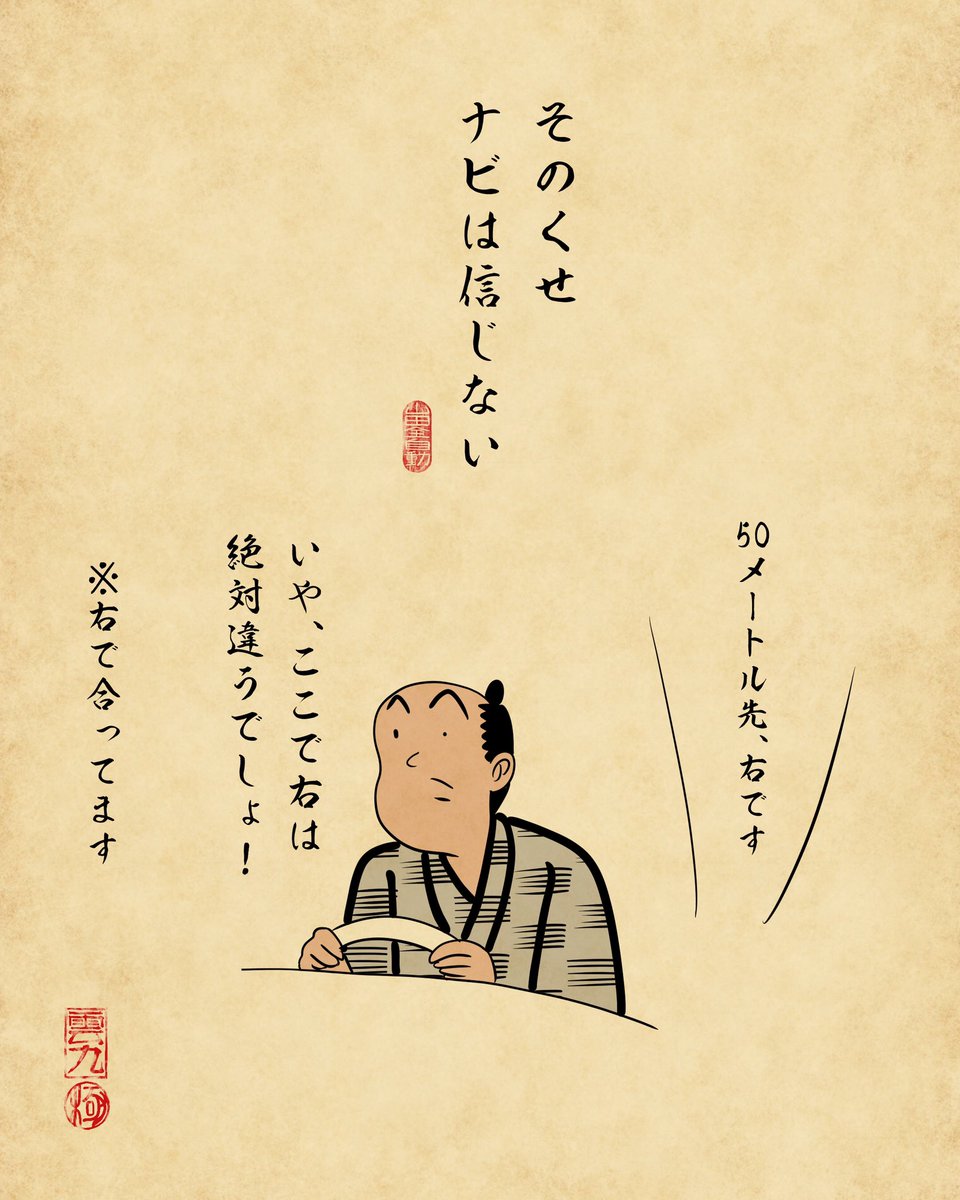 そのくせ
ナビは信じない
50メートル先、右です
いや、ここで右は
絶対違うでしょ!
※右で合ってます